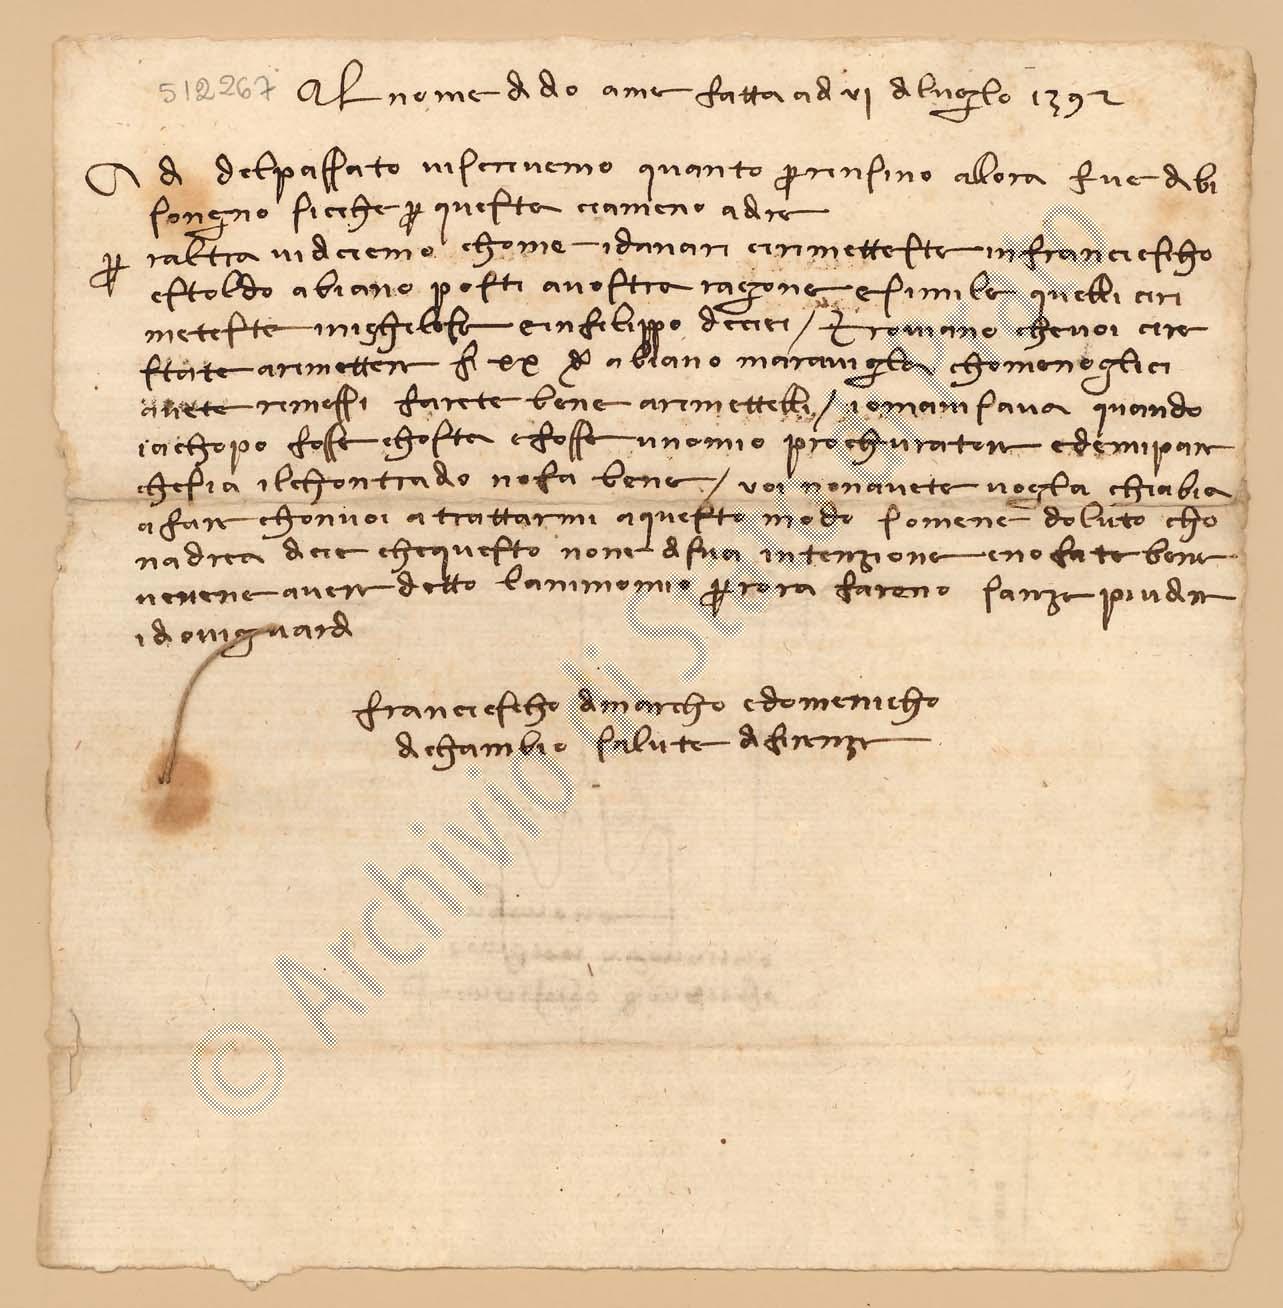 512267 Al nome di dio ame fatta a dì VI di luglo 1392
A dì del passato vi scrivemo quanto per ensino alora fue di bi
songno sicche per questa ciameno a dire
per raltra vi dciemo chome i danari ci rimetteste in franciescho
e stoldo abiano posti a vostra ragone e simile quelli ci ri
meteste in ighilese e in filippo decci / E troviano che voi ci re
state a rimetter f XX d abiano maravigla chome no gli ci
avete rimessi farete bene a rimetterlli / io mavisava quando
iachopo fosse chosta e fosse uno mio prochuratore ed e mi par
che sia il chontradio no fa bene / voi non avete vogla chi abia
a fare chon voi a trattarmi a questo modo somene doluto cho
nadrea di cie che questo none di sua intenzione e no fate bene
vevene aver detto lanimo mio per rora fareno sanza piu dir
idio vi guardi
franciescho di marcho e domenicho
di chambio salute di firenze
© Archivio di Stato di Prato